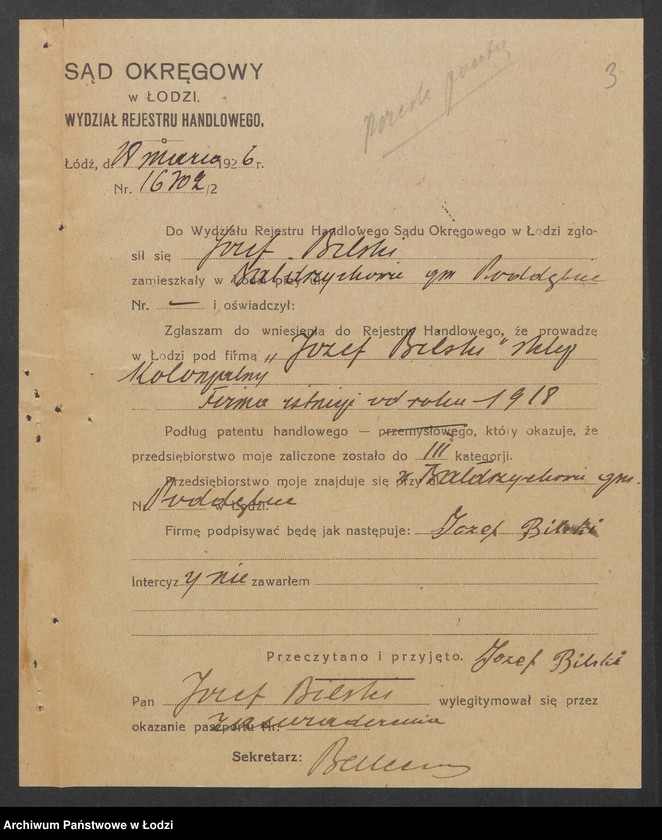 3
SĄD OKRĘGOWY
w ŁODZI.
WYDZIAŁ REJESTRU HANDLOWEGO.
Łódź, d. 18 marca 1926 r.
Nr. 16702/2
Do Wydziału Rejestru Handlowego Sądu Okręgowego w Łodzi zgło-
sił się Józef Bilski
zamieszkały w Łodzi przy ul. Bałdrzychowie gm Poddębice
Nr. — i oświadczył:
Zgłaszam do wniesienia do Rejestru Handlowego, że prowadzę
w Łodzi pod firmą „Józef Bilski" sklep
Kolonjalny
Firma istnieje od roku 1918
Podług patentu handlowego — przemysłowego, który okazuje, że
przedsiębiorstwo moje zaliczone zostało do III kategorji.
Przedsiębiorstwo moje znajduje się przy w Bałdrzychowie gm.
N Poddębice w Łodzi.
Firmę podpisywać będę jak następuje: Jozef Bilski
Intercyzy nie zawarłem
Przeczytano i przyjęto. Jozef Bilski
Pan Józef Bilski wylegitymował się przez
okazanie paszportu Nr. zaświadczenia
Sekretarz:
Archiwum Państwowe w Łodzi